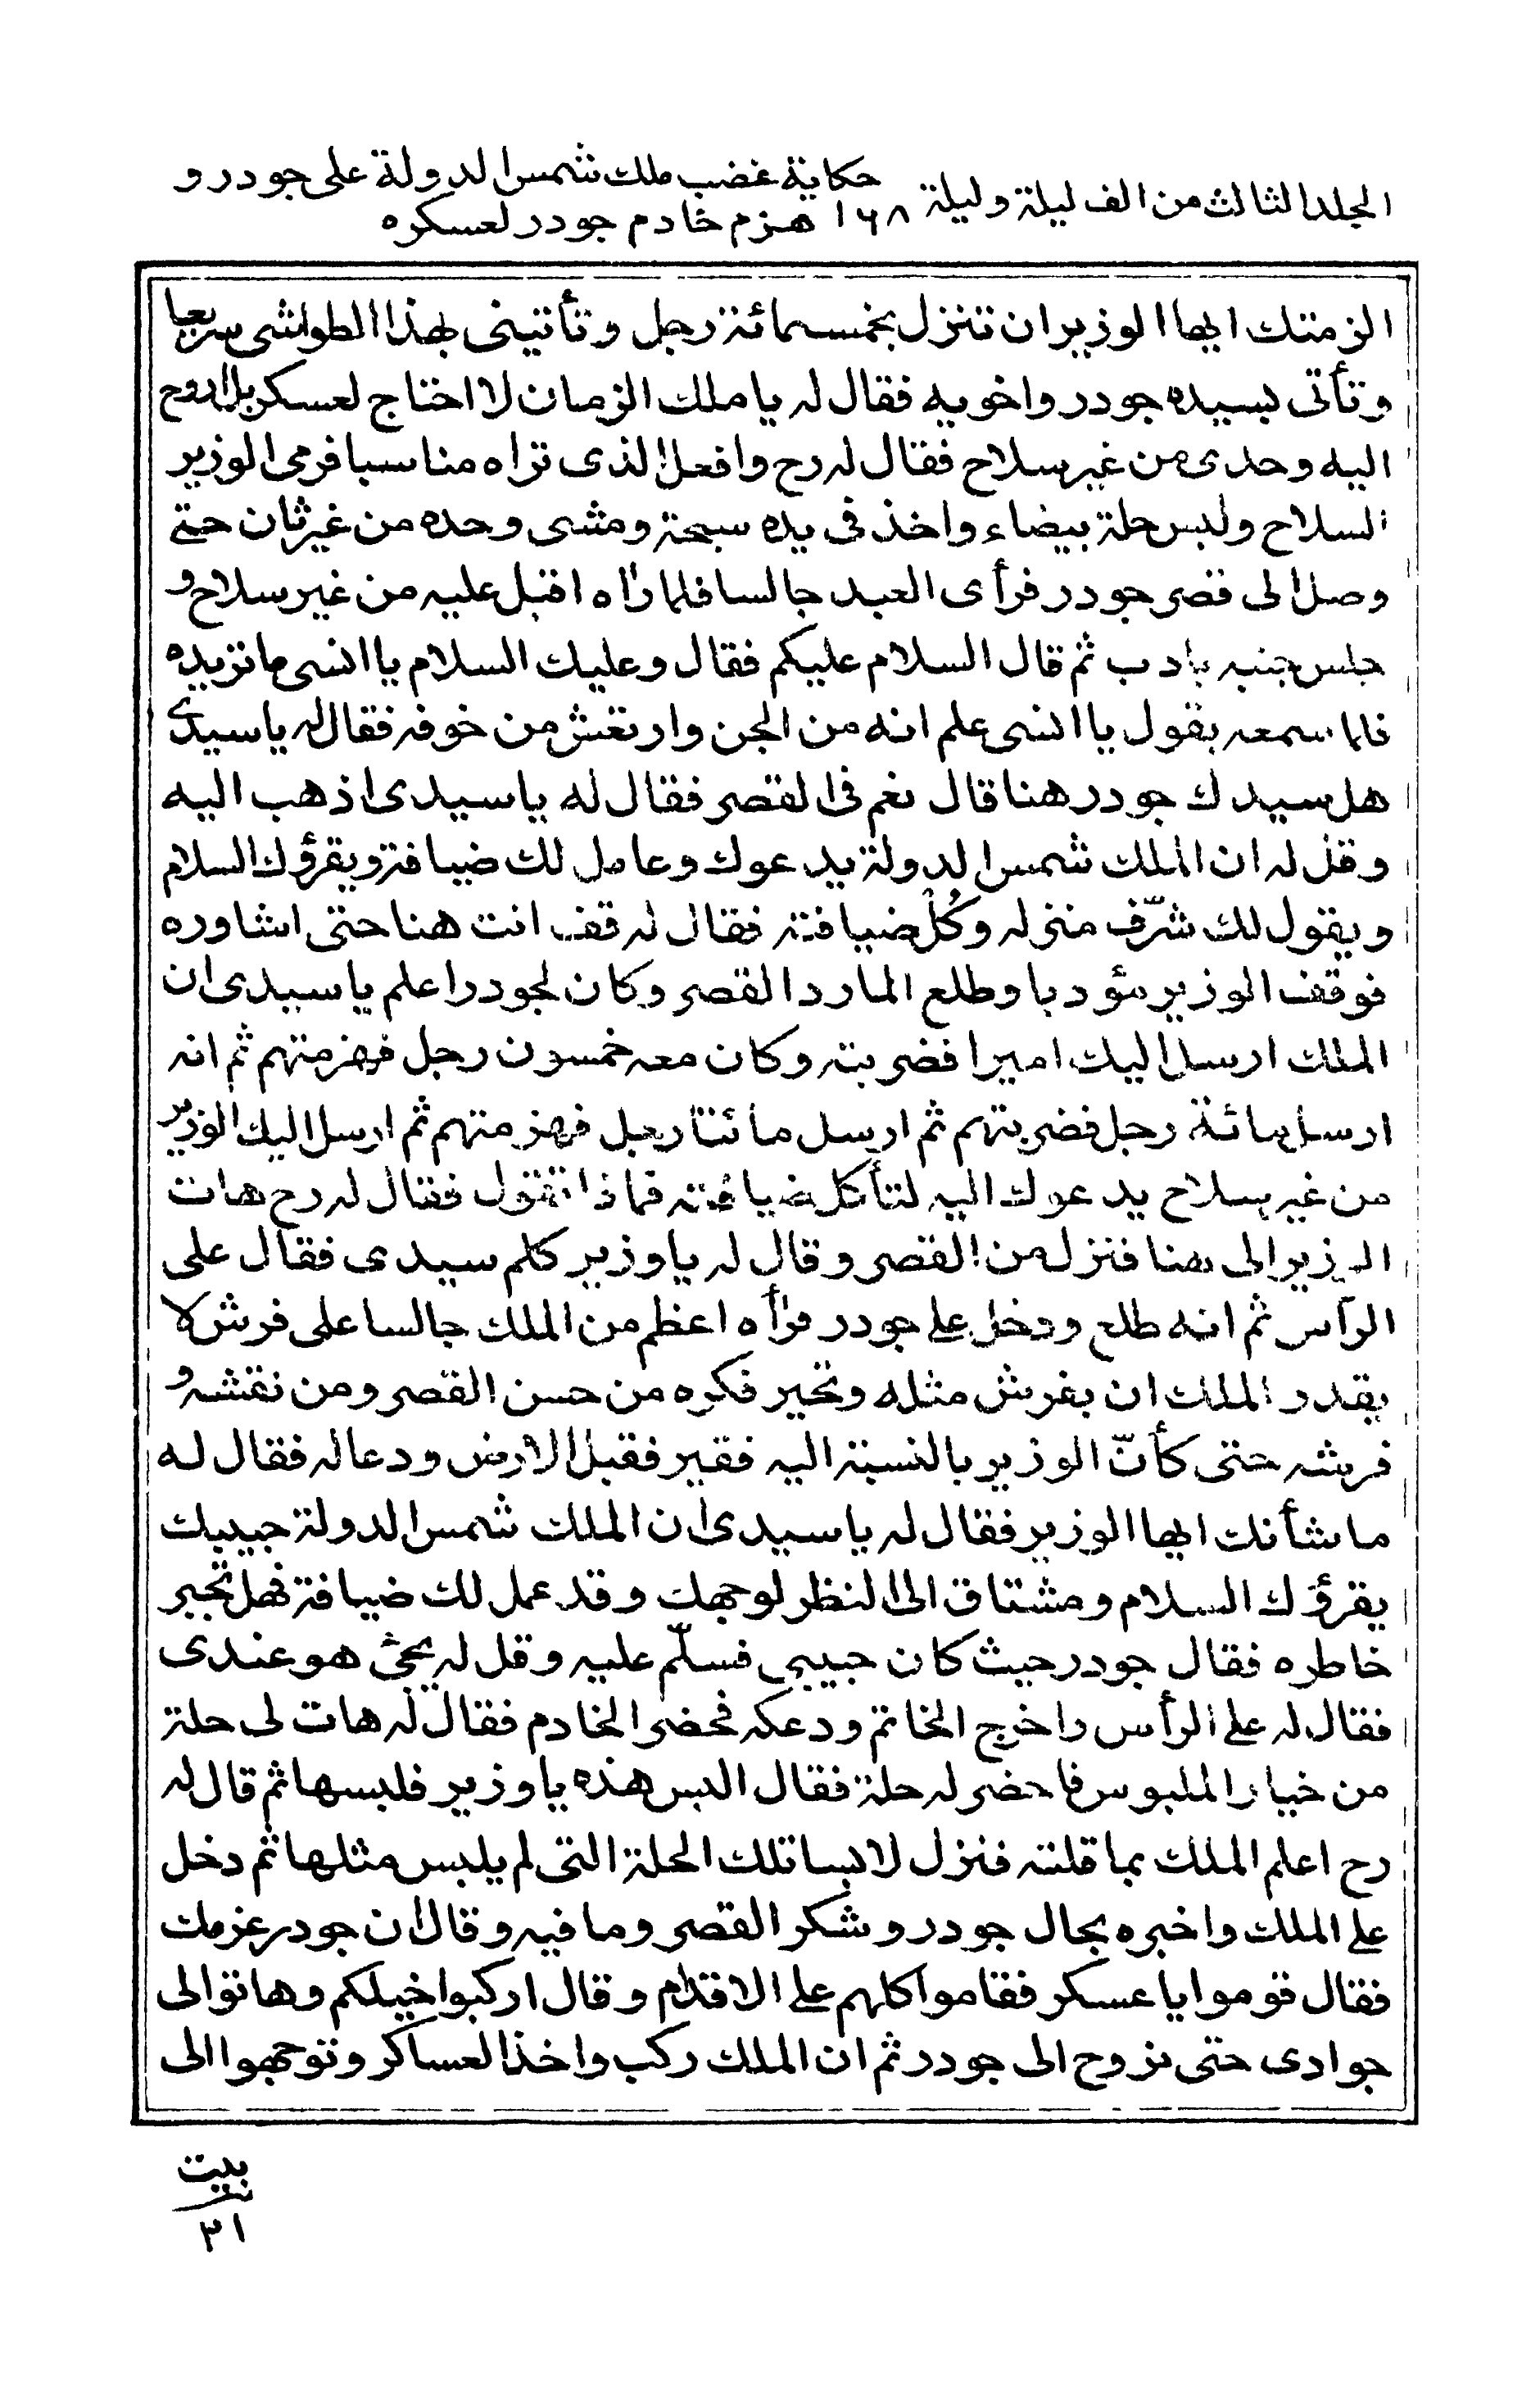 المجلد الثالث من الف ليلة وليلة ١٦٨ حكاية غضب ملك شمس الدولة على جودر و
هزم خادم جودر لعسكره
الزمتك ايها الوزير ان تنزل بخمسمائة رجل وتأتيني بهذا الطواشي سريعا
وتأتي بسيده جودر واخويه فقال له يا ملك الزمان لا احتاج لعسكر بل اروح
اليه وحدى من غير سلاح فقال له رح وافعل الذى تراه مناسبا فرمى الوزير
السلاح ولبس حلة بيضاء واخذ فى يده سبحة ومشى وحده من غير ثان حتى
وصل الى قصر جودر فرأى العبد جالسا فلما رأاه اقبل عليه من غير سلاح و
جلس جنبه بادب ثم قال السلام عليكم فقال وعليك السلام يا انسى ما تريده
فلما سمعه يقول يا انسى علم انه من الجن وارتعش من خوفه فقال له يا سيدى
هل سيدك جودر هنا قال نعم فى القصر فقال له يا سيدى اذهب اليه
وقل له ان الملك شمس الدولة يدعوك وعامل لك ضيافة ويقرؤك السلام
ويقول لك شرّف منزله وكُلْ ضيافته فقال له قف انت هنا حتى اشاوره
فوقف الوزير مؤدبا وطلع المارد القصر وكان لجودر اعلم يا سيدى ان
الملك ارسل اليك اميرا فضربته وكان معه خمسون رجل فهزمتهم ثم انه
ارسل مائة رجل فضربتهم ثم ارسل مائتا رجل فهزمتهم ثم ارسل اليك الوزير
من غير سلاح يدعوك اليه لتأكل ضيافته فما ذا تقول فقال له رح هات
الوزير الى هنا فنزل من القصر وقال له يا وزير كلم سيدى فقال على
الرأس ثم انه طلع ودخل على جودر فرأه اعظم من الملك جالسا على فرش لا
يقدر الملك ان يفرش مثله وتحير فكره من حسن القصر ومن نقشه و
فرشه حتى كأنّ الوزير بالنسبة اليه فقير فقبل الارض ودعا له فقال له
ما شأنك ايها الوزير فقال له يا سيدى ان الملك شمس الدولة حبيبك
يقرؤك السلام ومشتاق الى النظر لوجهك وقد عمل لك ضيافة فهل تجبر
خاطره فقال جودر حيث كان حبيبى فسلّم عليه وقل له يجئ هو عندى
فقال له على الرأس واخرج الخاتم ودعكه فحضر الخادم فقال له هات لى حلة
من خيار الملبوس فاحضر له حلة فقال البس هذه يا وزير فلبسها ثم قال له
رح اعلم الملك بما قلته فنزل لابسا تلك الحلة التى لم يلبس مثلها ثم دخل
على الملك واخبره بحال جودر وشكر القصر وما فيه وقال ان جودر عزمك
فقال قوموا يا عسكر فقاموا كلهم على الاقدام وقال اركبوا خيلكم وهاتوا لى
جوادى حتى نروح الى جودر ثم ان الملك ركب واخذ العساكر وتوجهوا الى
بيت
٢١